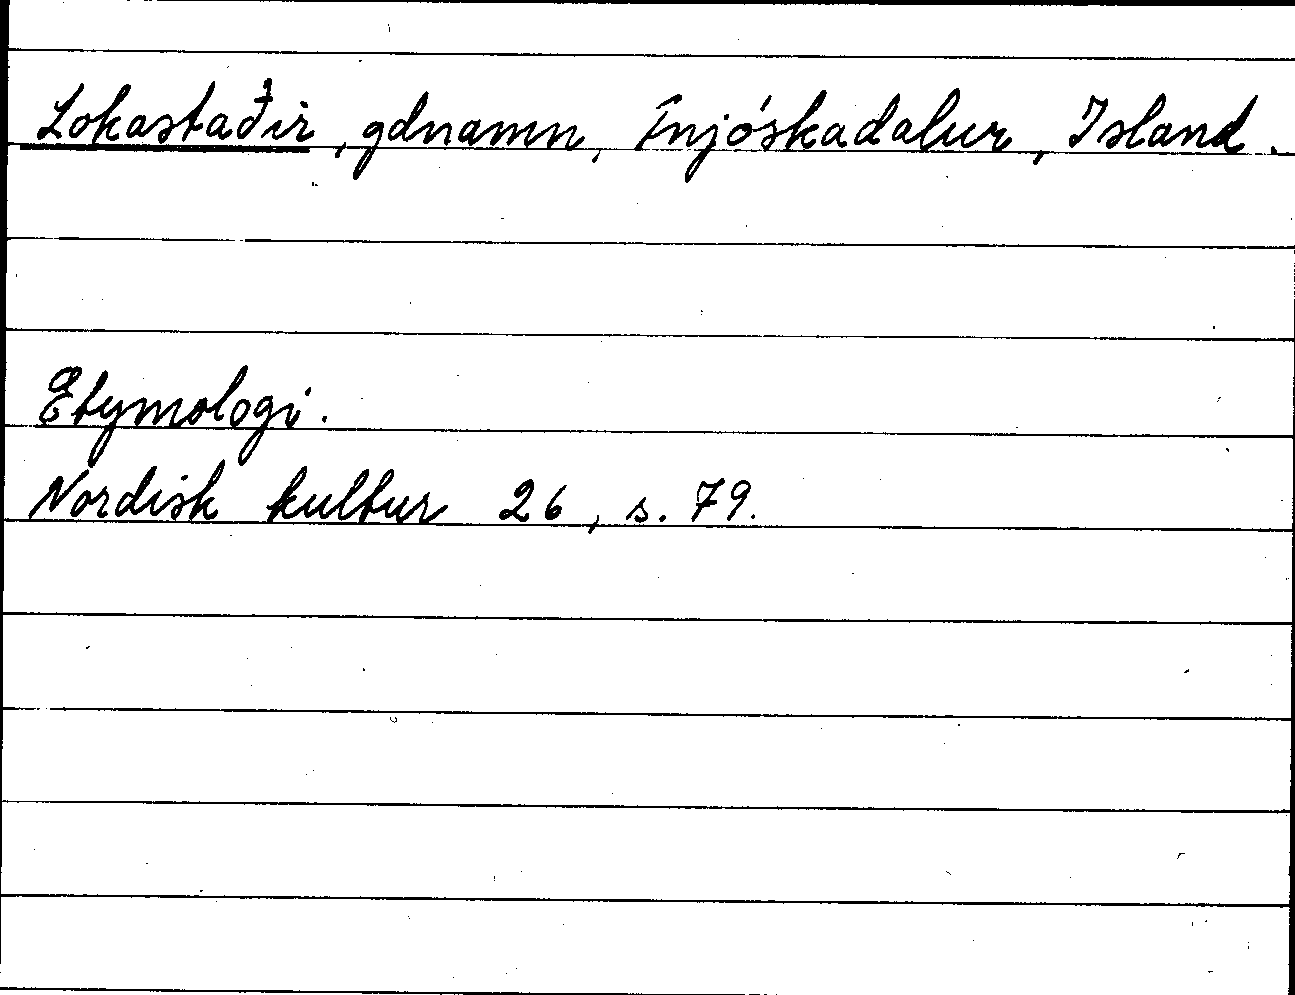 Lokastaðir, gdnamn, Fnjóskadalur, Island.
Etymologi.
Nordisk kultur 26, s. 79.